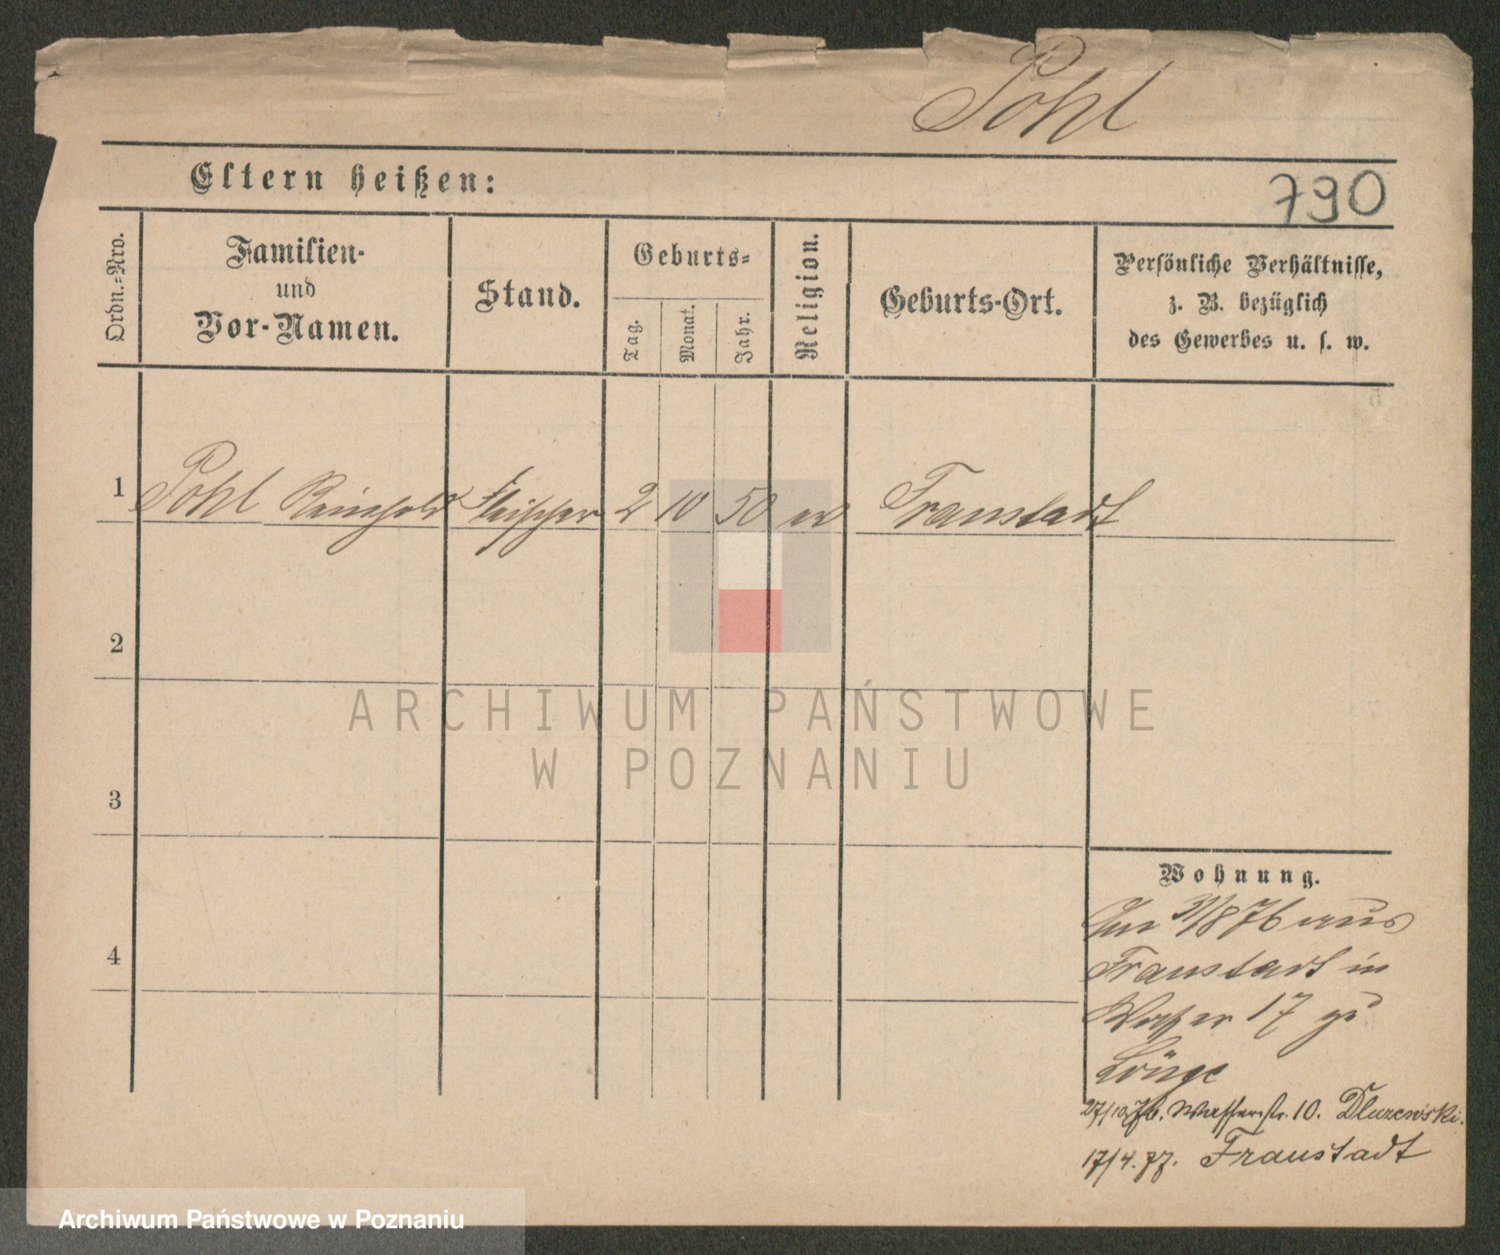 Pohl
Eltern heißen:
790
Ordn.-Nro.
Familien-
und
Vor-Namen.
Stand.
Geburts-
Tag.
Monat.
Jahr.
Religion.
Geburts-Ort.
Persönliche Verhältnisse,
z. B. bezüglich
des Gewerbes u. s. w.
1 Pohl Reinhold Fleischer 2 10 50 ev Fraustadt
2
3
4
ARCHIWUM PAŃSTWOWE
W POZNANIU
Wohnung.
/8 76 aus
Fraustadt in
Wasser 17 zu
27/10.76. Wasserstr. 10. Dluzewski.
17/4.77. Fraustadt
Archiwum Państwowe w Poznaniu